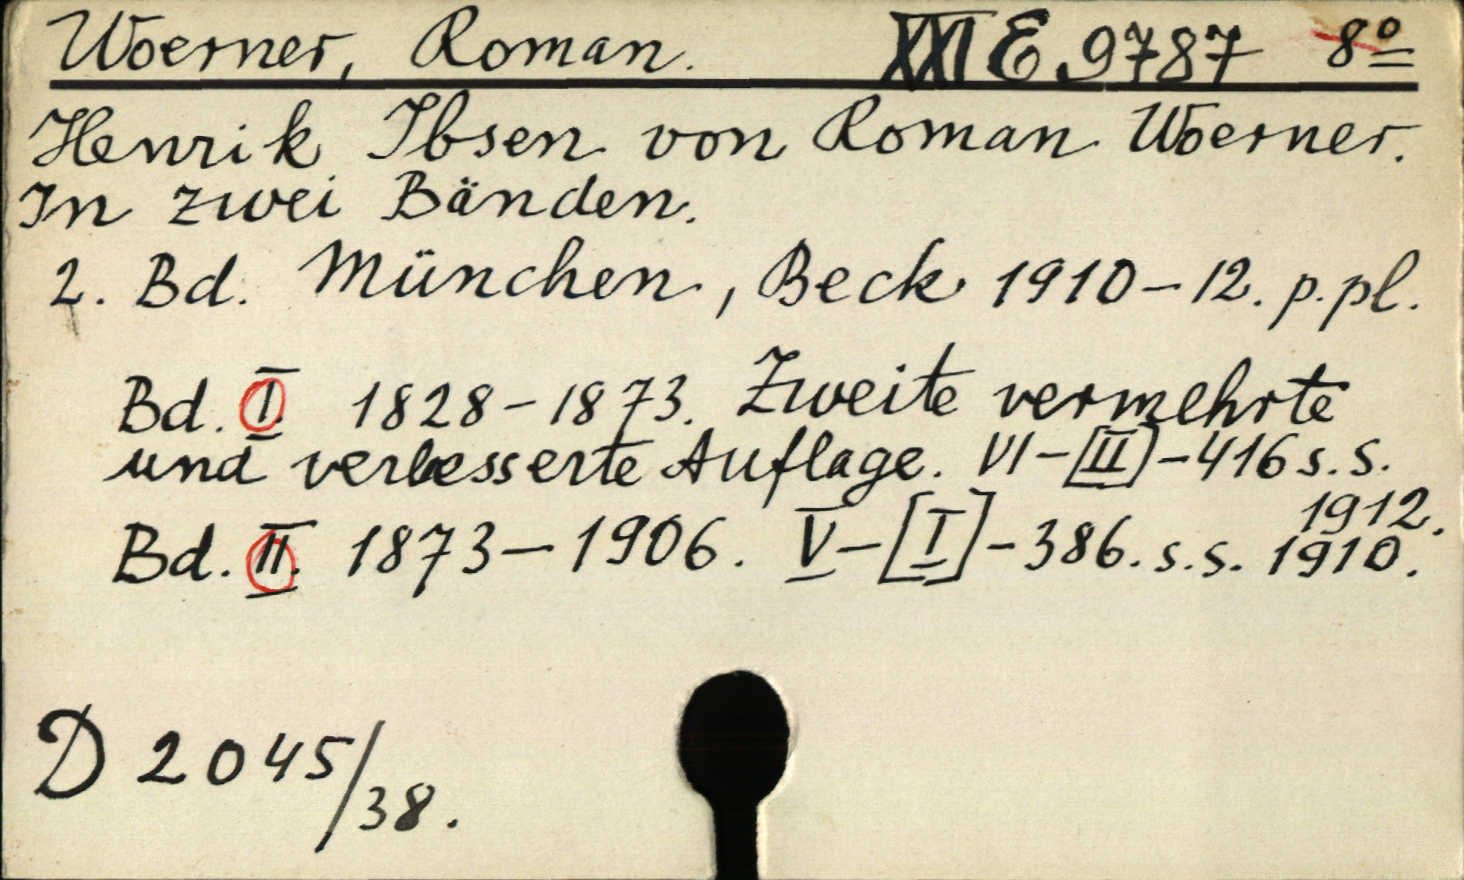 Woerner, Roman. XXI E 9787 8º
Henrik Ibsen von Roman Woerner.
In zwei Bänden.
2. Bd. München, Beck 1910-12. p. pl.
Bd. I. 1828-1873. Zweite vermehrte
und verbesserte Auflage. VI-[II]-416 s. s.
1912.
Bd. II. 1873-1906. V-[I]-386. s. s. 1910.
D 2045/38.